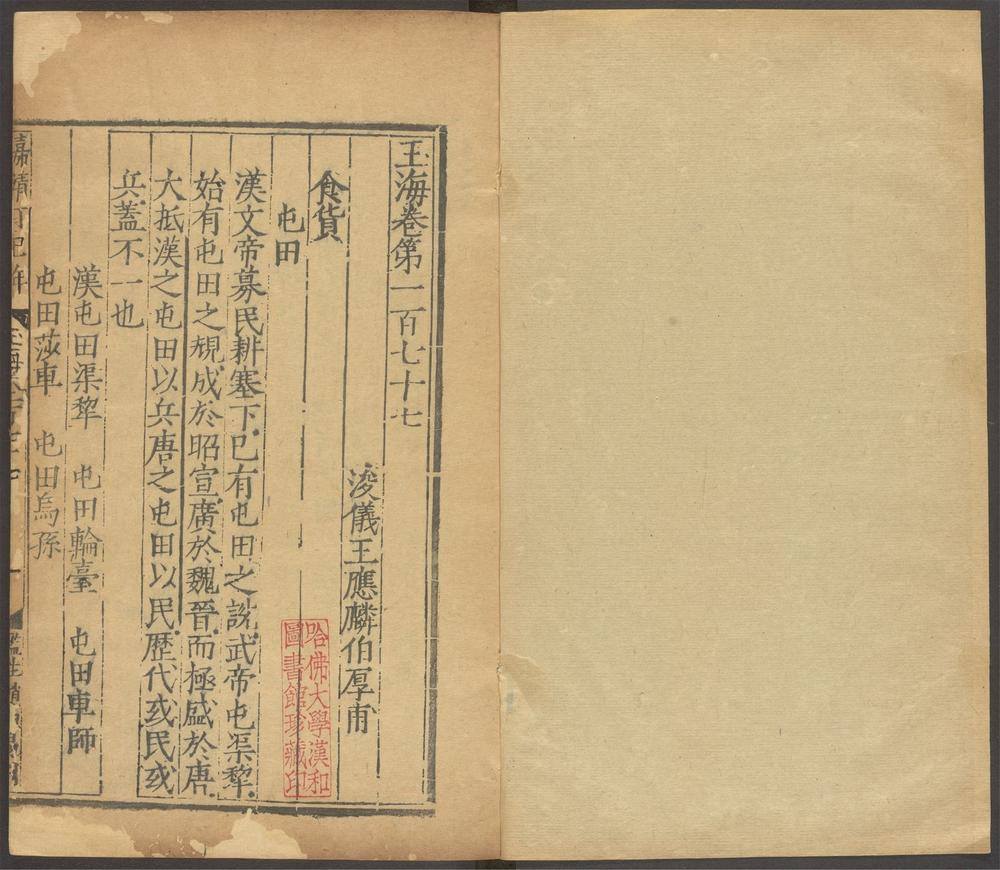 玉海卷第一百七十七
浚儀王應麟伯厚甫
食貨
屯田
漢文帝募民耕塞下已有屯田之說武帝屯渠犂
始有屯田之規成於昭宣廣於魏晉而極盛於唐
大抵漢之屯田以兵唐之屯田以民歷代或民或
兵蓋不一也
漢屯田渠犂 屯田輪臺 屯田車師
屯田莎車 屯田烏孫
嘉靖
哈佛大學漢和
圖書館珍藏印